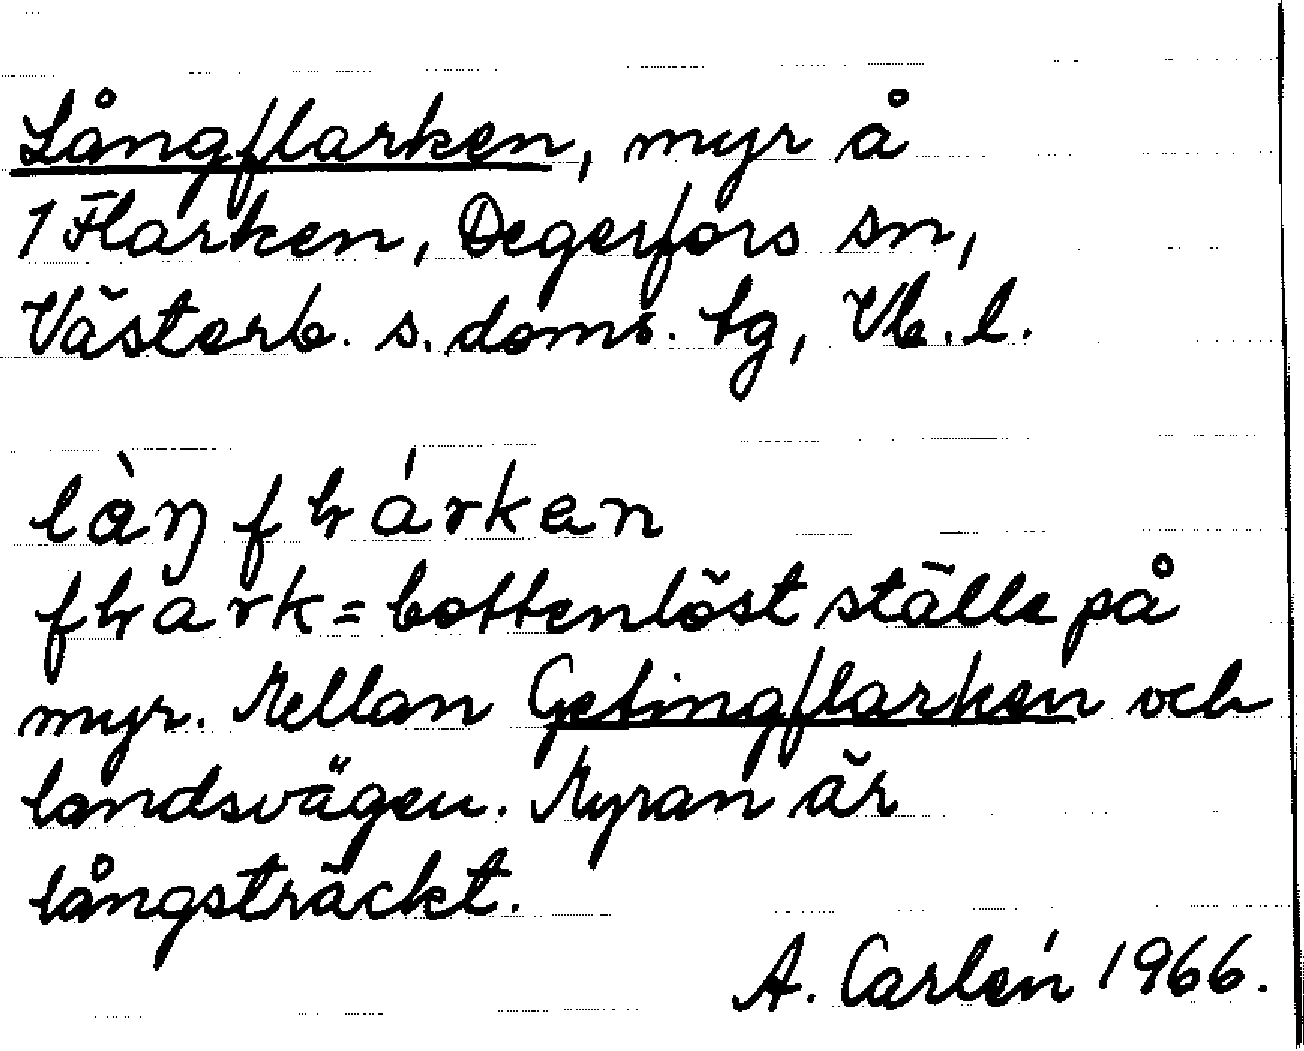 Långflarken, myr å
1 Flarken, Degerfors sn,
Västerb. s. doms. tg, Vb. l.
làŋ fɫárken
fɫark = bottenlöst ställe på
myr. Mellan Getingflarken och
landsvägen. Myran är
långsträckt.
A. Carlén 1966.